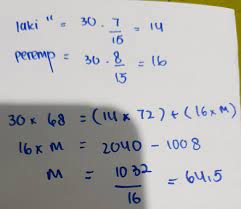 laki" = 30 . 7/15 = 14
peremp = 30 . 8/15 = 16
30 x 68 = (14 x 72) + (16 x M)
16 x M = 2040 - 1008
M = 1032/16 = 64,5